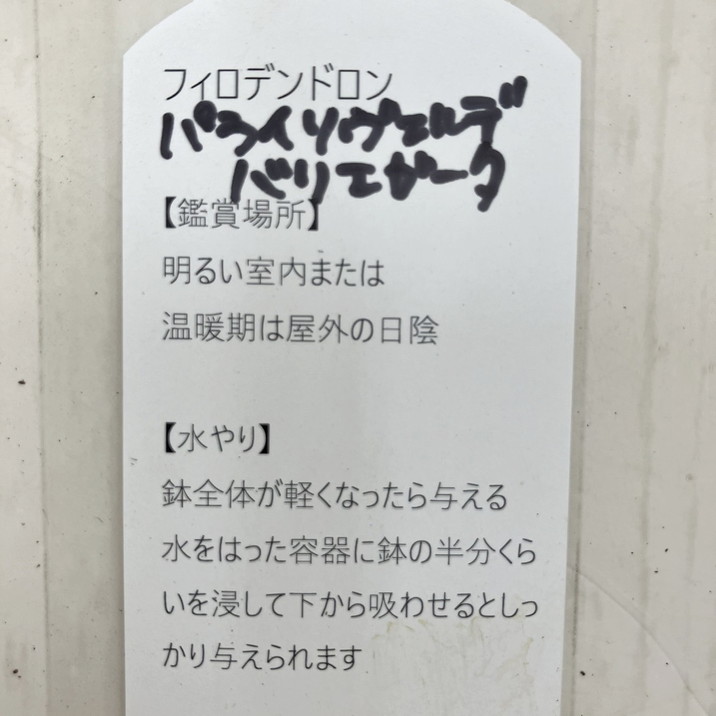 フィロデンドロン
パライソヴェルデ
バリエガータ
【鑑賞場所】
明るい室内または
温暖期は屋外の日陰
【水やり】
鉢全体が軽くなったら与える
水をはった容器に鉢の半分くら
いを浸して下から吸わせるとしっ
かり与えられます